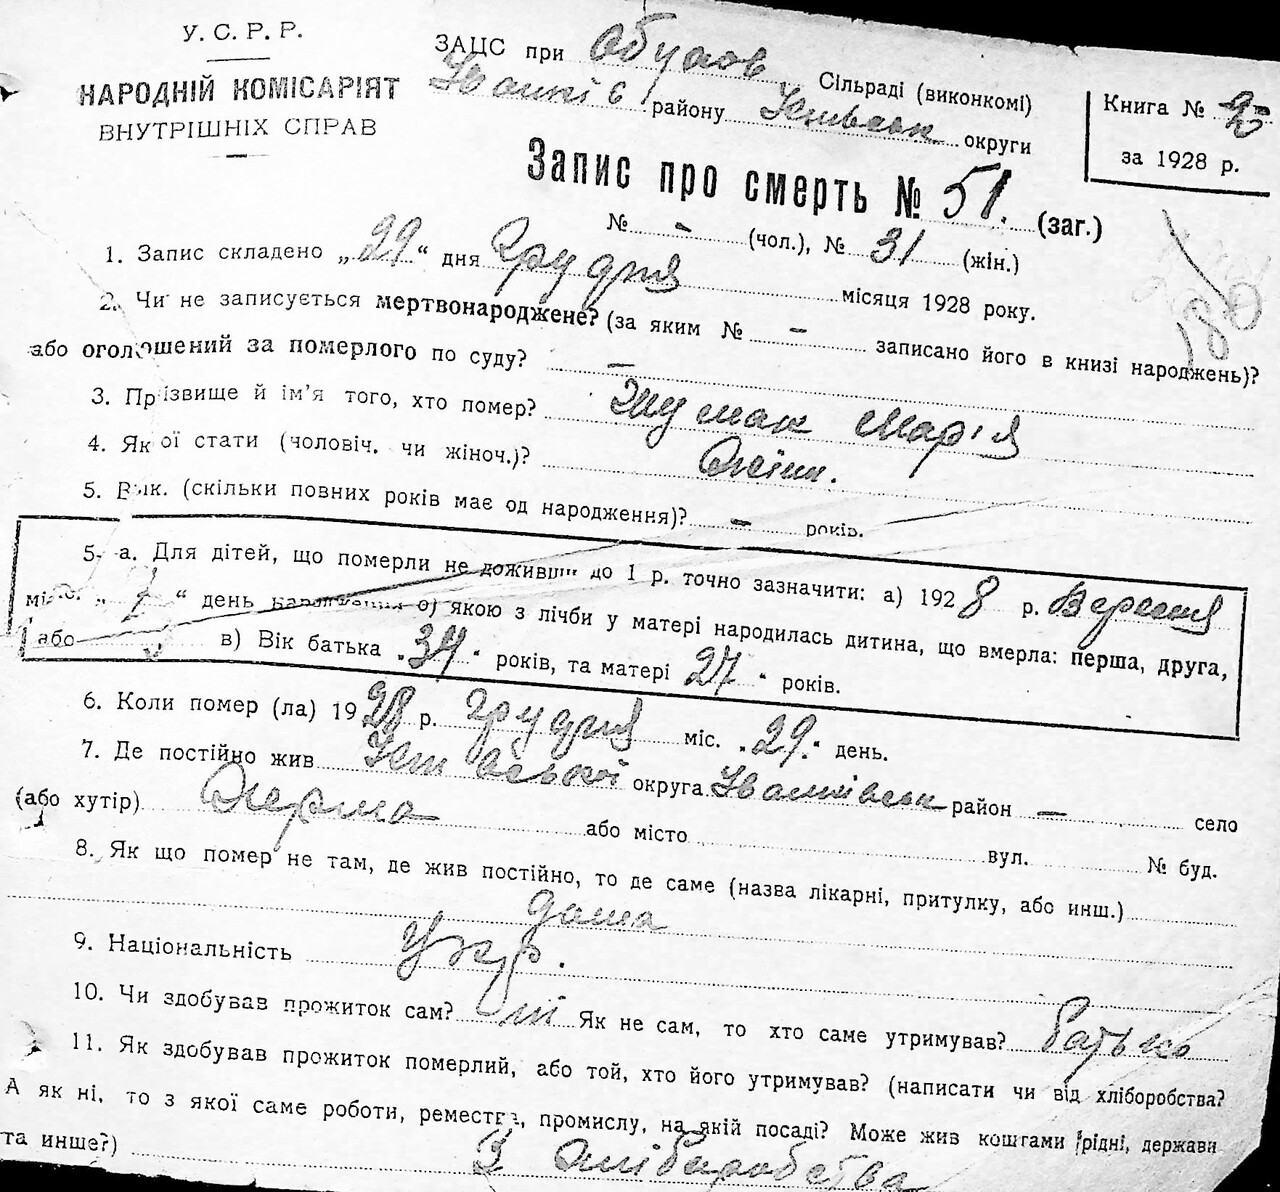 У. С. Р. Р.
НАРОДНІЙ КОМІСАРІЯТ
ВНУТРІШНІХ СПРАВ
ЗАЦС при Обухов Сільраді (виконкомі)
Іванків району Київськ округи
Книга №
за 1928 р.
Запис про смерть № 51. (заг.)
№ - (чол.), № 31 (жін.)
180
1. Запис складено „29“ дня Грудня місяця 1928 року.
2. Чи не записується мертвонароджене? (за яким № — записано його в книзі народжень)?
або оголошений за померлого по суду? —
3. Прізвище й ім’я того, хто помер? Шумак Марія
4. Якої стати (чоловіч. чи жіноч.)? Жіноч.
5. Вік. (скільки повних років має од народження)? — років.
5-а. Для дітей, що померли не доживши до 1 р. точно зазначити: а) 1928 р. Вересня
міс. „7“ день народження б) якою з лічби у матері народилась дитина, що вмерла: перша, друга,
або в) Вік батька „34“ років, та матері 27 років.
6. Коли помер (ла) 1928 р. Грудня міс. „29“ день.
7. Де постійно жив Київської округа Іванківськ район — село
(або хутір) або місто вул. № буд.
8. Як що помер не там, де жив постійно, то де саме (назва лікарні, притулку, або инш.)
дома
9. Національність Укр.
10. Чи здобував прожиток сам? ні Як не сам, то хто саме утримував? батько
11. Як здобував прожиток померлий, або той, хто його утримував? (написати чи від хліборобства?
А як ні, то з якої саме роботи, ремества, промислу, на якій посаді? Може жив коштами рідні, держави
та инше?) З хліборобства